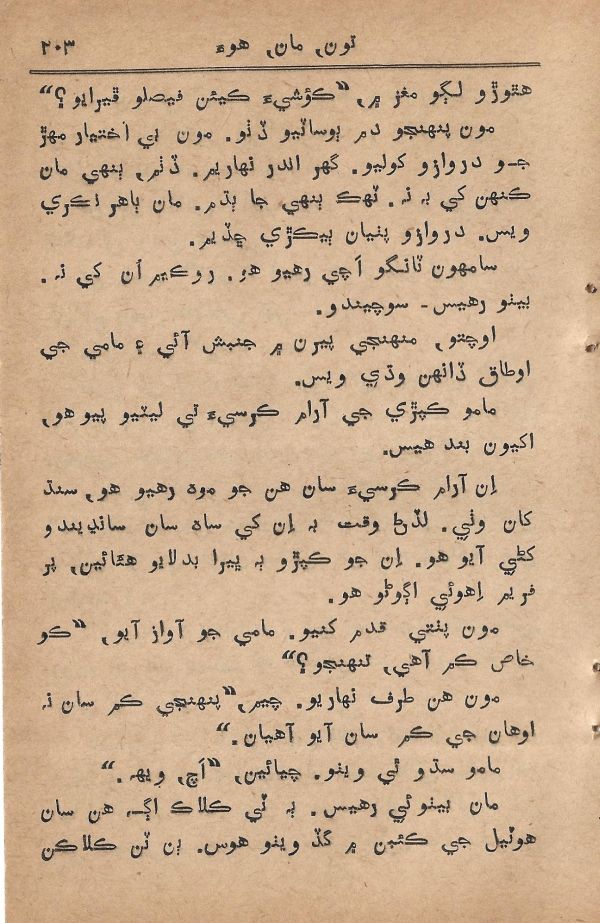 تون, مان, هوءَ ۲۰۳
هٿوڙو لڳو مغز ۾, ”ڪؤشيءَ ڪيئن فيصلو ڦيرايو؟“
مون پنهنجو دم ٻوساٽيو ڏٺو. مون بي اَختيار مهڙ
جو دروازو کوليو. گهر اندر نهاريم. ڏٺم, ٻنهي مان
ڪنهن کي به نه. ٽهڪ ٻنهي جا ٻڌم. مان ٻاهر نڪري
ويس. دروازو پٺيان ٻيڪڙي ڇڏيم.
سامهون ٽانگو اَچي رهيو هو. روڪيم اُن کي نه.
بيٺو رهيس- سوچيندو.
اوچتو, منهنجي پيرن ۾ جنبش آئي ۽ مامي جي
اوطاق ڏانهن وڌي ويس.
مامو ڪپڙي جي آرام ڪرسيءَ تي ليٽيو پيو هو,
اکيون بند هيس.
اِن آرام ڪرسيءَ سان هن جو موه رهيو هو, سنڌ
کان وٺي. لڏڻ وقت به اِن کي ساه سان سانڍيندو
کڻي آيو هو. اِن جو ڪپڙو ٻه ڀيرا بدلايو هئائين, پر
فريم اِهوئي اڳوڻو هو.
مون پٺتي قدم کنيو. مامي جو آواز آيو, ”ڪو
خاص ڪم آهي, تنهنجو؟“
مون هن طرف نهاريو. چيم, ”پنهنجي ڪم سان نه
اوهان جي ڪم سان آيو آهيان.“
مامو سڌو ٿي ويٺو. چيائين, ”اَچ, ويهه.“
مان بيٺوئي رهيس. ٻه ٽي ڪلاڪ اڳ هن سان
هوٽيل جي ڪئبن ۾ گڏ ويٺو هوس. ٻن ٽن ڪلاڪن